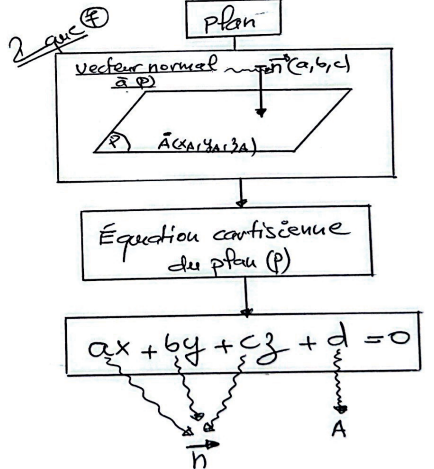 plan
? que ⑦
vecteur normal n⃗(a,b,c)
à (P)
(P) A(xA, yA, zA)
Équation cartisienne
du plan (P)
ax + by + cz + d = 0
n⃗ A